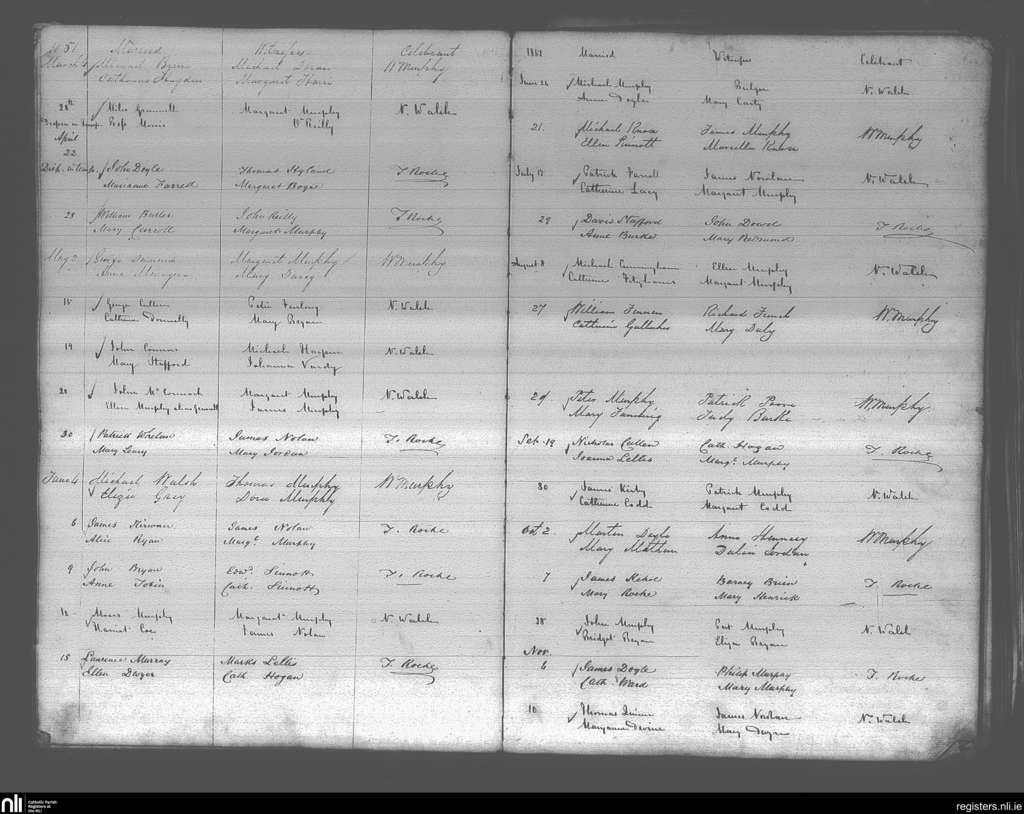 1851 Married Witnesses Celebrant
March 3 Michael Brien Michael Doran W Murphy
Catherine Margaret
28th Miles Margaret Murphy N. Walsh
Reilly
April
22
Disp. in temp. John Doyle Thomas Hyland T Roche
Marianne Farred Margaret Boyse
23 William Butler John Reilly T Roche
Mary Carroll Margaret Murphy
May 3 George Margaret Murphy W Murphy
Anne Mary Darcy
15 George Cullen Peter Furlong N. Walsh
Catherine Donnelly Mary Bryan
19 John Connors Michael N. Walsh
Mary Stafford Johanna
20 John McCormack Margaret Murphy N. Walsh
Ellen Murphy alias James Murphy
30 Patrick Whelan James Nolan T. Roche
Mary Leary Mary Jordan
June 4 Michael Walsh Thomas Murphy W Murphy
Eliza Gray Dora Murphy
6 James Kirwan James Nolan T. Roche
Alice Ryan Margt. Murphy
9 John Bryan Edwd. Sinnott T. Roche
Anne Tobin Cath. Sinnott
Moses Murphy Margaret Murphy N. Walsh
Harriet Coe James Nolan
15 Laurence Murray Marks Lettis T Roche
Ellen Dwyer Cath Hogan
1851 Married Witnesses Celebrant
June 26 Michael Murphy N. Walsh
Anne Doyle Mary
21. Michael James Murphy W Murphy
Ellen Sinnott Marcella
July 15 Patrick Farrell James Nowlan N. Walsh
Catherine Lacy Margaret Murphy
29 Davis Stafford John Dowd T Roche
Anne Burke Mary Redmond
August 8 Michael Cunningham Ellen Murphy N. Walsh
Catherine Fitzharris Margaret Murphy
27 William Finnen Richard French W. Murphy
Catherine Gallaher Mary Daly
29 Peter Murphy Patrick W. Murphy
Mary Fanning Judy Burke
Sept. 19 Nicholas Cullen Cath Hogan T. Roche
Joanna Lettis Margt. Murphy
30 James Kirby Patrick Murphy N. Walsh
Catherine Codd Margaret Codd
Oct 2 Martin Doyle Anne Hennesy W Murphy
Mary Jordan
7 James Kehoe Barney Brien T Roche
Mary Roche Mary Kenrick
28 John Murphy Murphy N. Walsh
Bridget Bryan Eliza Bryan
Nov.
6 James Doyle Philip Murphy T. Roche
Cath. Ward Mary Murphy
10 Thomas Quinn James Nowlan N. Walsh
Maryanne Devine Mary Dwyer
nli
Catholic Parish
Registers at
the NLI
registers.nli.ie